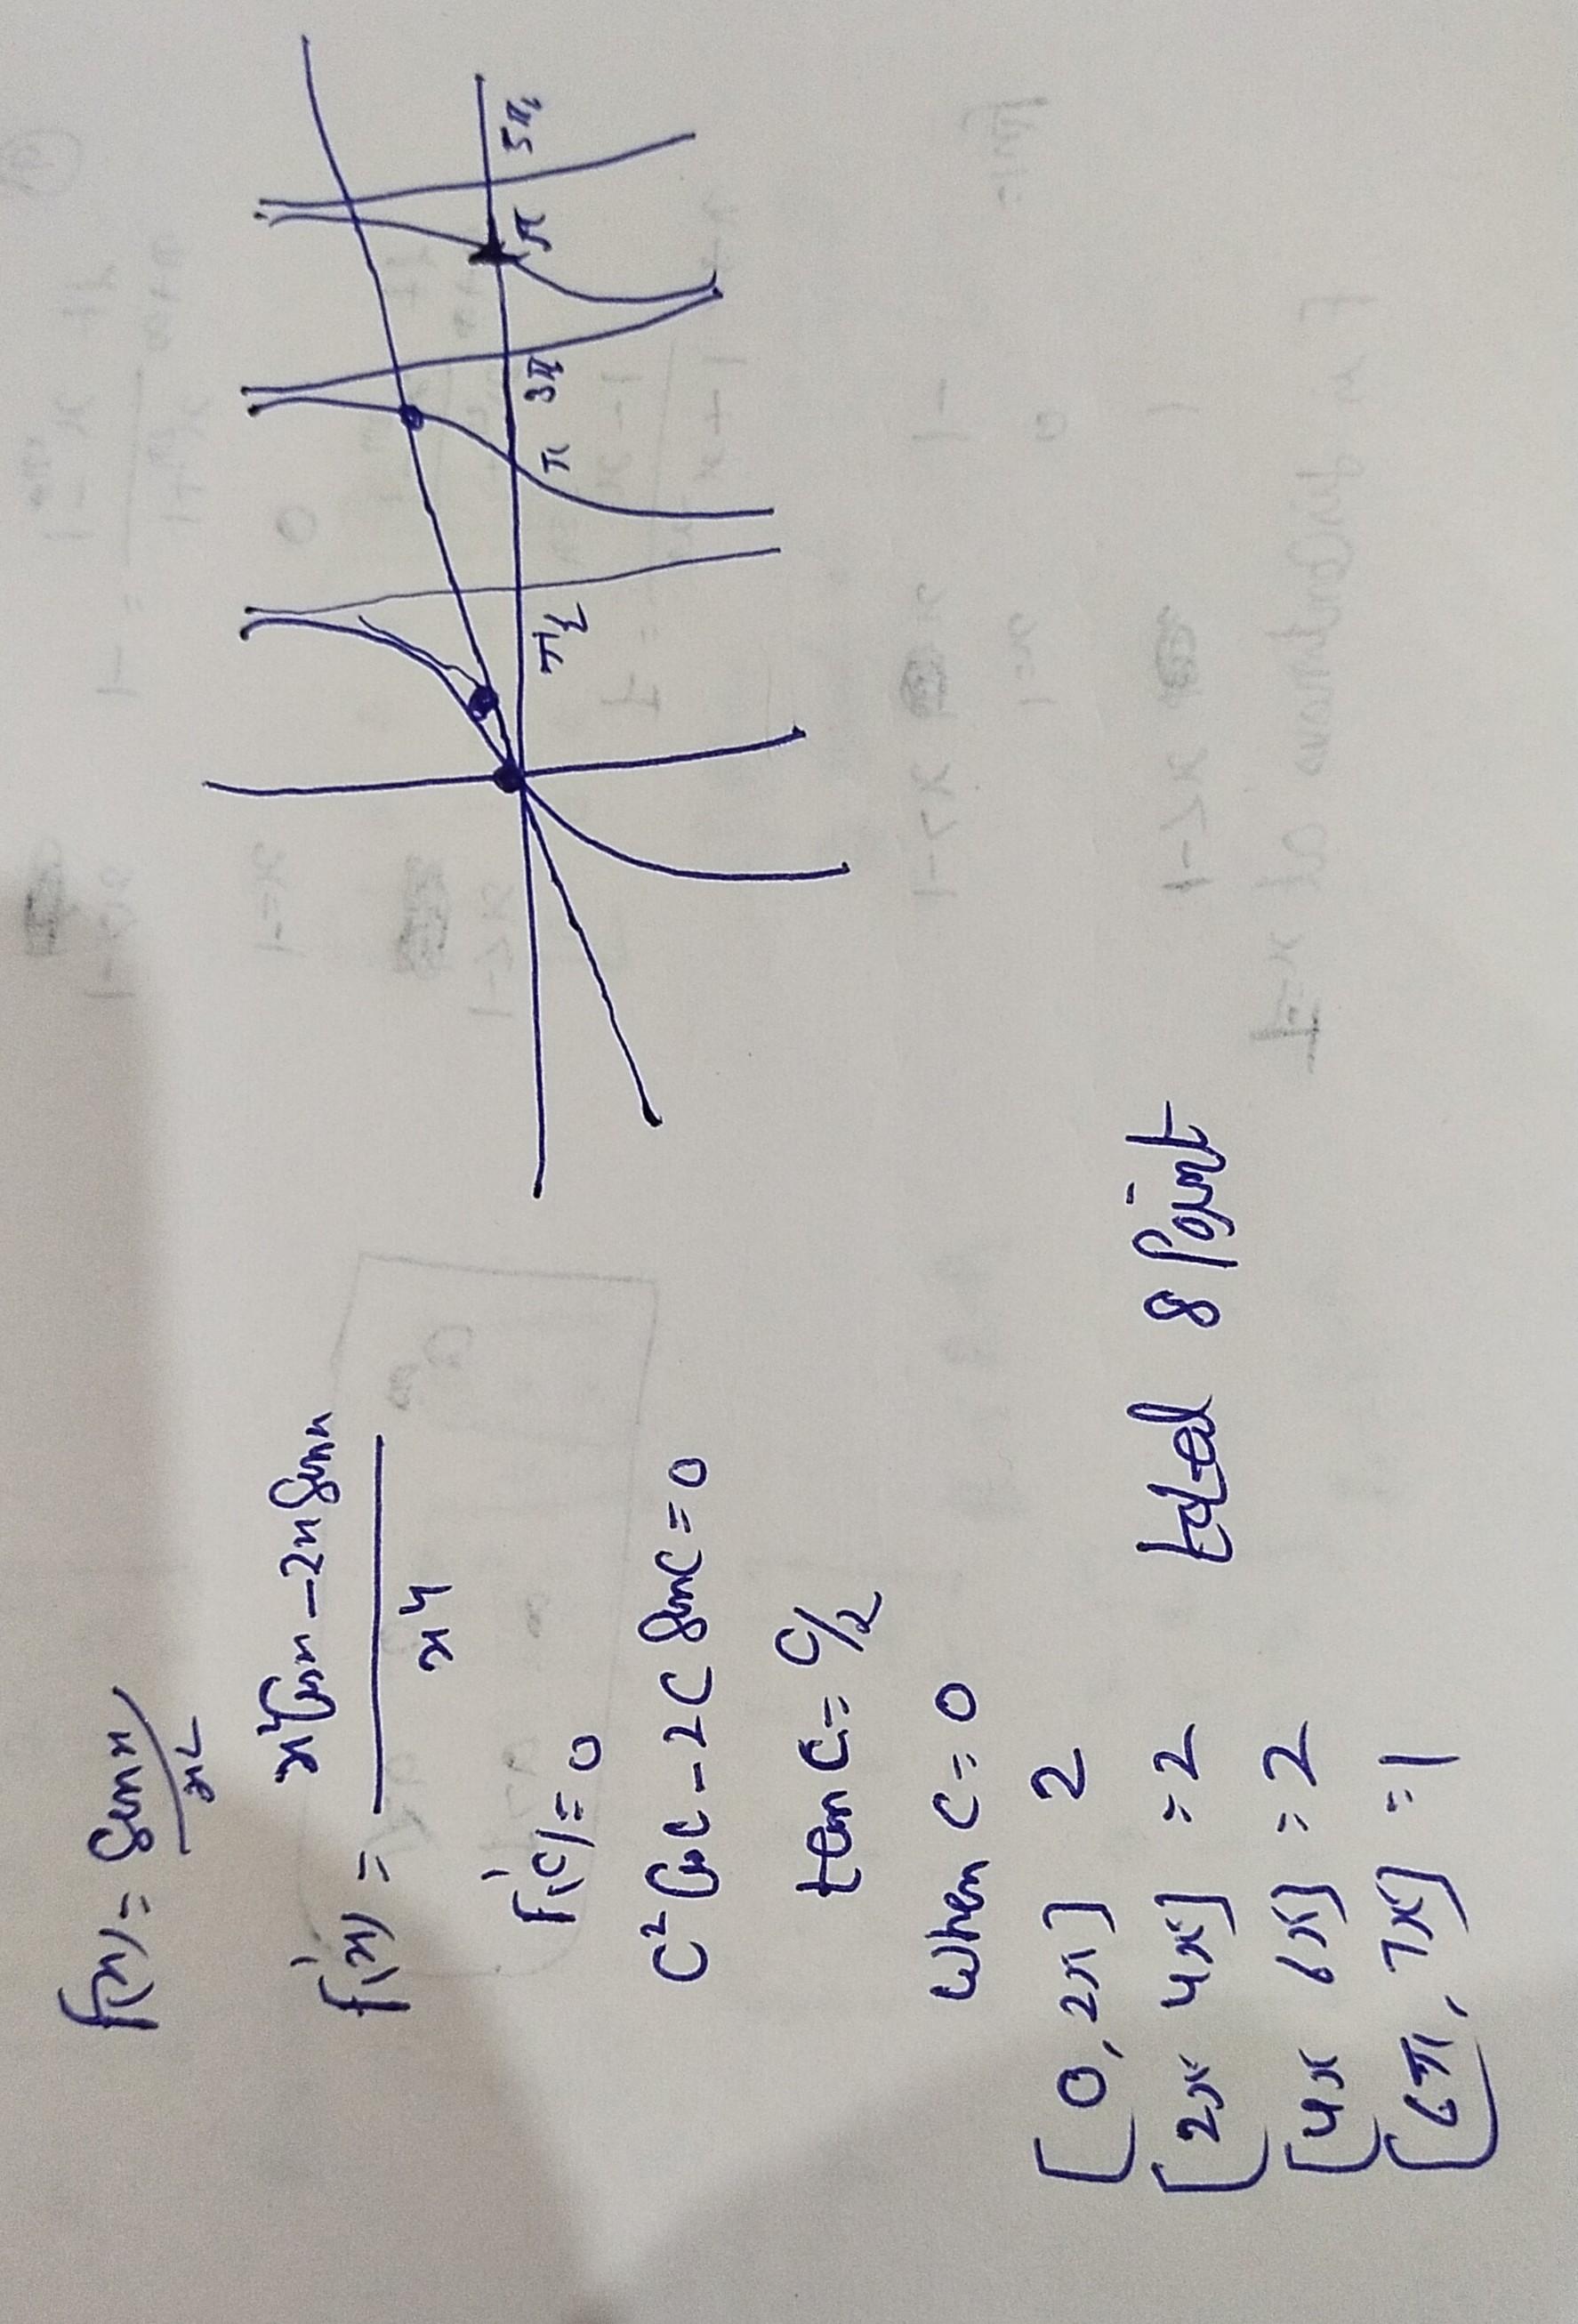 f(x) = sin x / x²
f'(x) = x² cos x - 2x sin x / x⁴
f'(c) = 0
c² cos c - 2c sin c = 0
tan c = c/2
when c = 0
[0, 2π] 2
[2π 4π] = 2
[4π 6π] = 2
[6π, 7π] = 1
total 8 point
π/2 π 3π π 5π/2